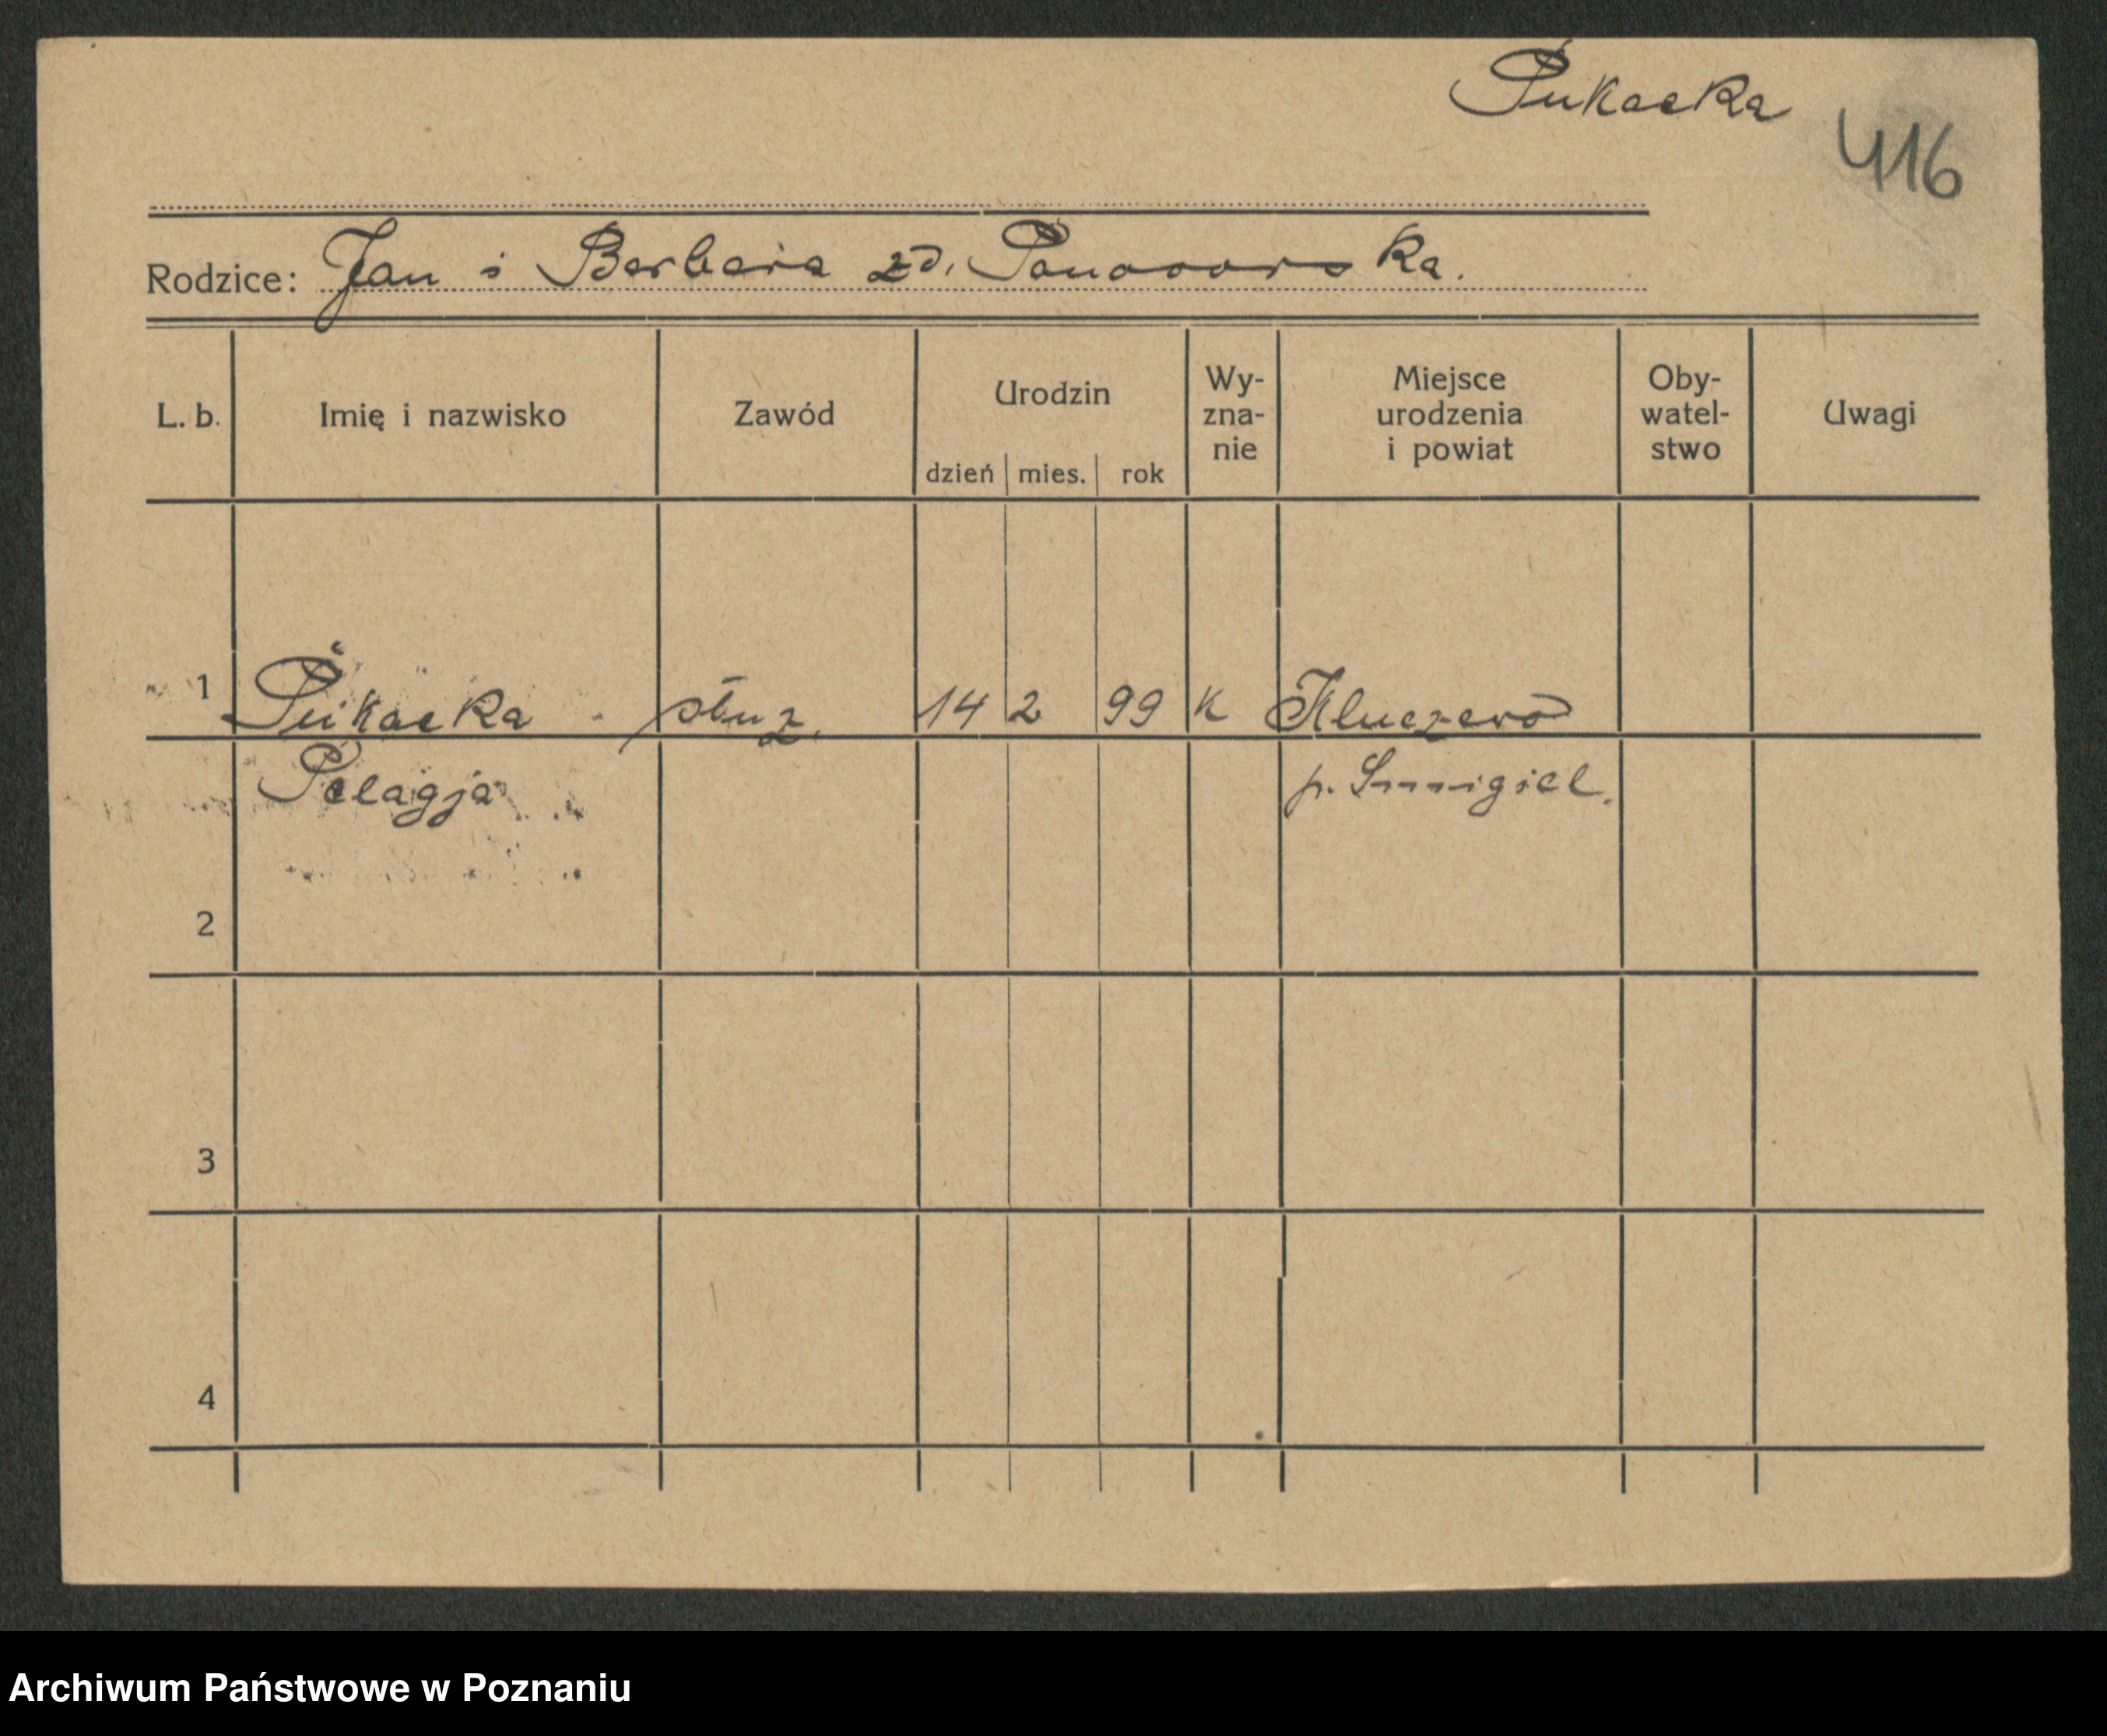 Pukacka
416
Rodzice: Jan i Barbara zd.
L. b. Imię i nazwisko Zawód Urodzin dzień mies. rok Wy-zna-nie Miejsce urodzenia i powiat Oby-watel-stwo Uwagi
1 Pukacka służ. 14 2 99 K Kluczewo
Pelagja p. Smigiel.
2
3
4
Archiwum Państwowe w Poznaniu